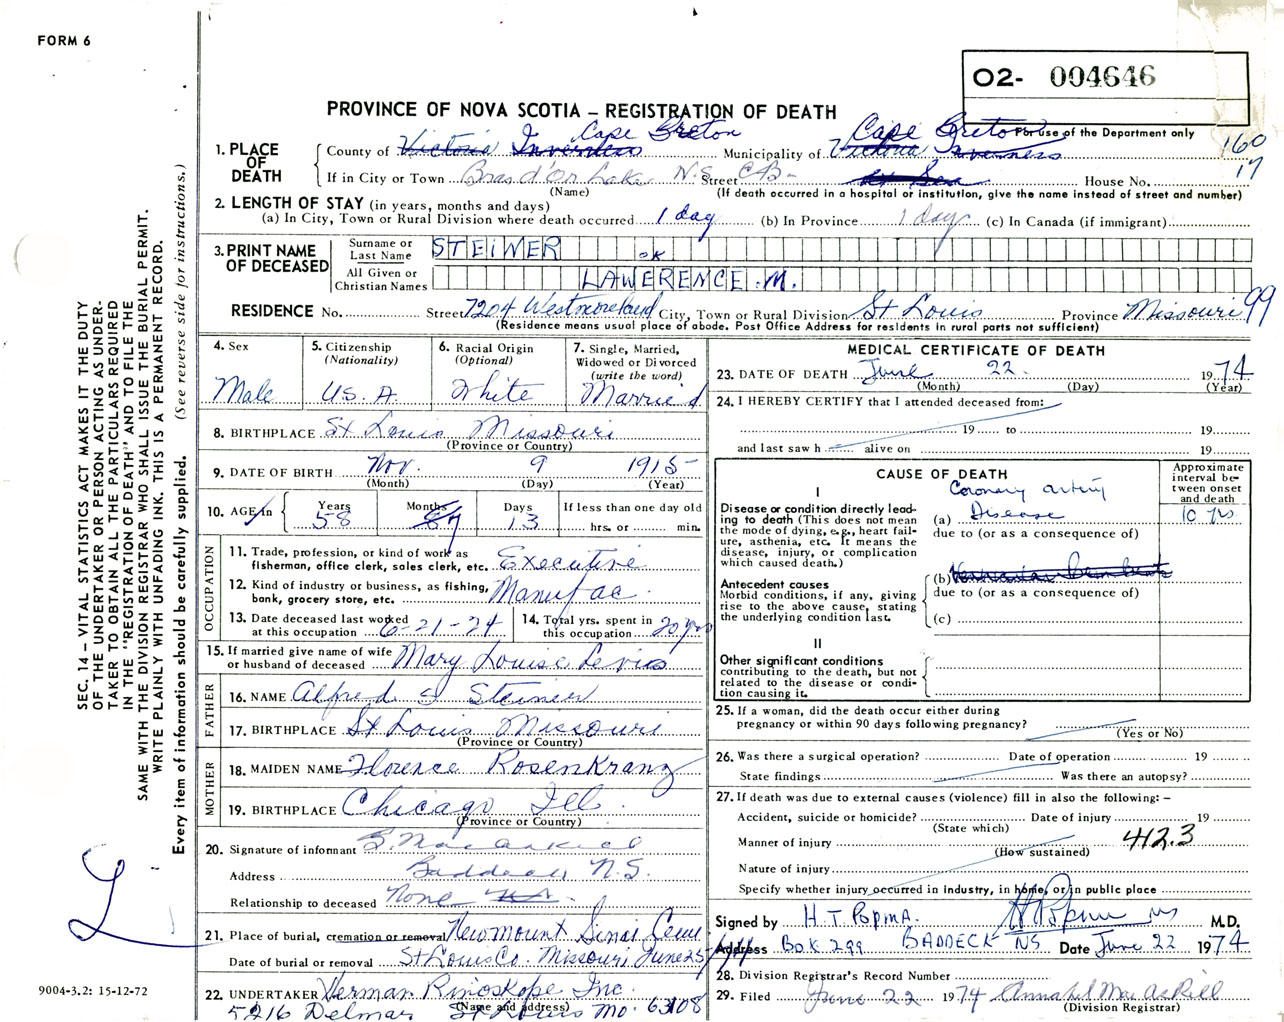 FORM 6
O2- 004646
For use of the Department only
PROVINCE OF NOVA SCOTIA – REGISTRATION OF DEATH
160
17
1. PLACE OF DEATH
County of Victoria Inverness Cape Breton Municipality of Victoria Inverness Cape Breton
If in City or Town Bras d'Or Lake N.S. Street CB- House No.
(Name) (If death occurred in a hospital or institution, give the name instead of street and number)
2. LENGTH OF STAY (in years, months and days)
(a) In City, Town or Rural Division where death occurred 1 day (b) In Province 1 day (c) In Canada (if immigrant)
3. PRINT NAME OF DECEASED
Surname or Last Name STEINER
OK
All Given or Christian Names LAWERENCE M.
RESIDENCE No. Street 7204 Westmoreland City, Town or Rural Division St Louis Province Missouri 99
(Residence means usual place of abode. Post Office Address for residents in rural parts not sufficient)
4. Sex Male
5. Citizenship (Nationality) U.S.A.
6. Racial Origin (Optional) White
7. Single, Married, Widowed or Divorced (write the word) Married
8. BIRTHPLACE St Louis Missouri
(Province or Country)
9. DATE OF BIRTH Nov. 9 1915
(Month) (Day) (Year)
10. AGE Years 58 Months 7 Days 13 If less than one day old
hrs. or min.
OCCUPATION
11. Trade, profession, or kind of work as fisherman, office clerk, sales clerk, etc. Executive
12. Kind of industry or business, as fishing, bank, grocery store, etc. Manufac
13. Date deceased last worked at this occupation 6-21-74
14. Total yrs. spent in this occupation 20 yrs
15. If married give name of wife or husband of deceased Mary Louise
FATHER
16. NAME Alfred S Steiner
17. BIRTHPLACE St Louis Missouri
(Province or Country)
MOTHER
18. MAIDEN NAME Florence Rosenkranz
19. BIRTHPLACE Chicago Ill
(Province or Country)
20. Signature of informant MacAskill
Address Baddeck N.S.
Relationship to deceased None
21. Place of burial, cremation or removal Newmount Sinai Cem
Date of burial or removal St Louis Co. Missouri June 25/74
22. UNDERTAKER Herman Rinoskope Inc.
(Name and address)
5216 Delmar St Louis Mo. 63108
MEDICAL CERTIFICATE OF DEATH
23. DATE OF DEATH June 22 1974
(Month) (Day) (Year)
24. I HEREBY CERTIFY that I attended deceased from:
19 to 19
and last saw h alive on 19
CAUSE OF DEATH
Approximate interval between onset and death
I
Disease or condition directly leading to death (This does not mean the mode of dying, e.g., heart failure, asthenia, etc. It means the disease, injury, or complication which caused death.)
(a) Coronary artery Disease 10 yrs.
due to (or as a consequence of)
Antecedent causes
Morbid conditions, if any, giving rise to the above cause, stating the underlying condition last.
(b)
due to (or as a consequence of)
(c)
II
Other significant conditions contributing to the death, but not related to the disease or condition causing it.
25. If a woman, did the death occur either during pregnancy or within 90 days following pregnancy?
(Yes or No)
26. Was there a surgical operation? Date of operation 19
State findings Was there an autopsy?
27. If death was due to external causes (violence) fill in also the following: –
Accident, suicide or homicide? Date of injury 19
(State which)
Manner of injury 412.3
(How sustained)
Nature of injury
Specify whether injury occurred in industry, in home, or in public place
Signed by H.T. POPMA. M.D.
Address BOX 299 BADDECK NS Date June 22 1974
28. Division Registrar's Record Number
29. Filed June 22 1974 Annabel MacAskill
(Division Registrar)
SEC. 14 – VITAL STATISTICS ACT MAKES IT THE DUTY
OF THE UNDERTAKER OR PERSON ACTING AS UNDER-
TAKER TO OBTAIN ALL THE PARTICULARS REQUIRED
IN THE "REGISTRATION OF DEATH" AND TO FILE THE
SAME WITH THE DIVISION REGISTRAR WHO SHALL ISSUE THE BURIAL PERMIT.
WRITE PLAINLY WITH UNFADING INK. THIS IS A PERMANENT RECORD.
Every item of information should be carefully supplied. (See reverse side for instructions.)
9004-3.2: 15-12-72